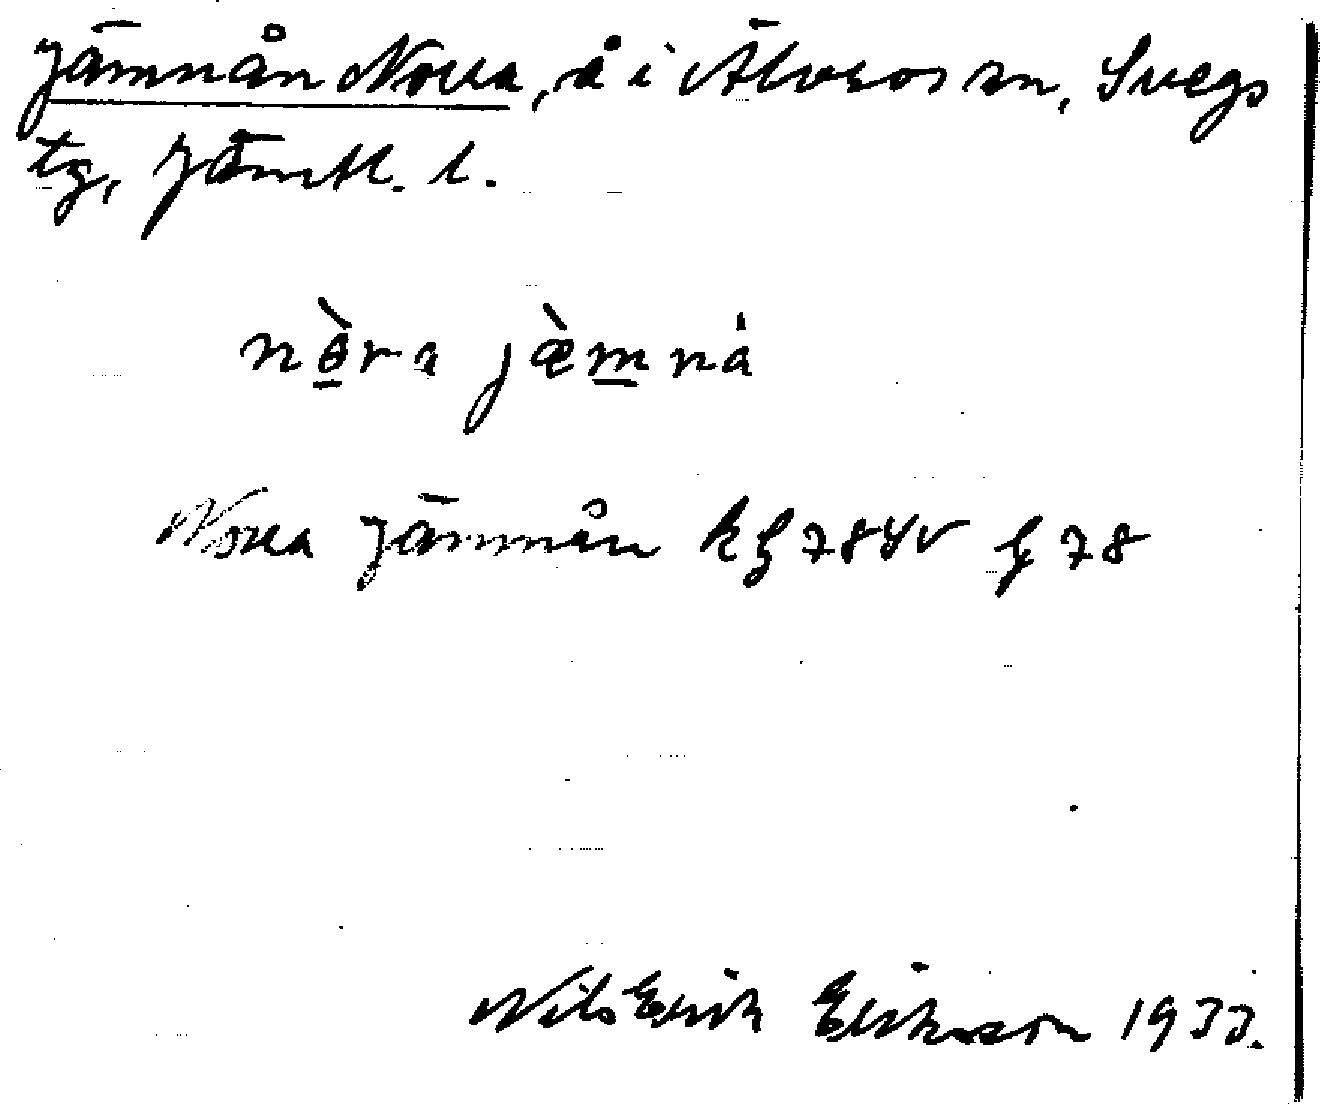 Jämnån Norra, å i Älvros sn, Svegs
tg, Jämtl. l.
nòra jæ̀mnå
Norra Jämnån kg 784V g 78
Nils Erik Eriksson 1933.